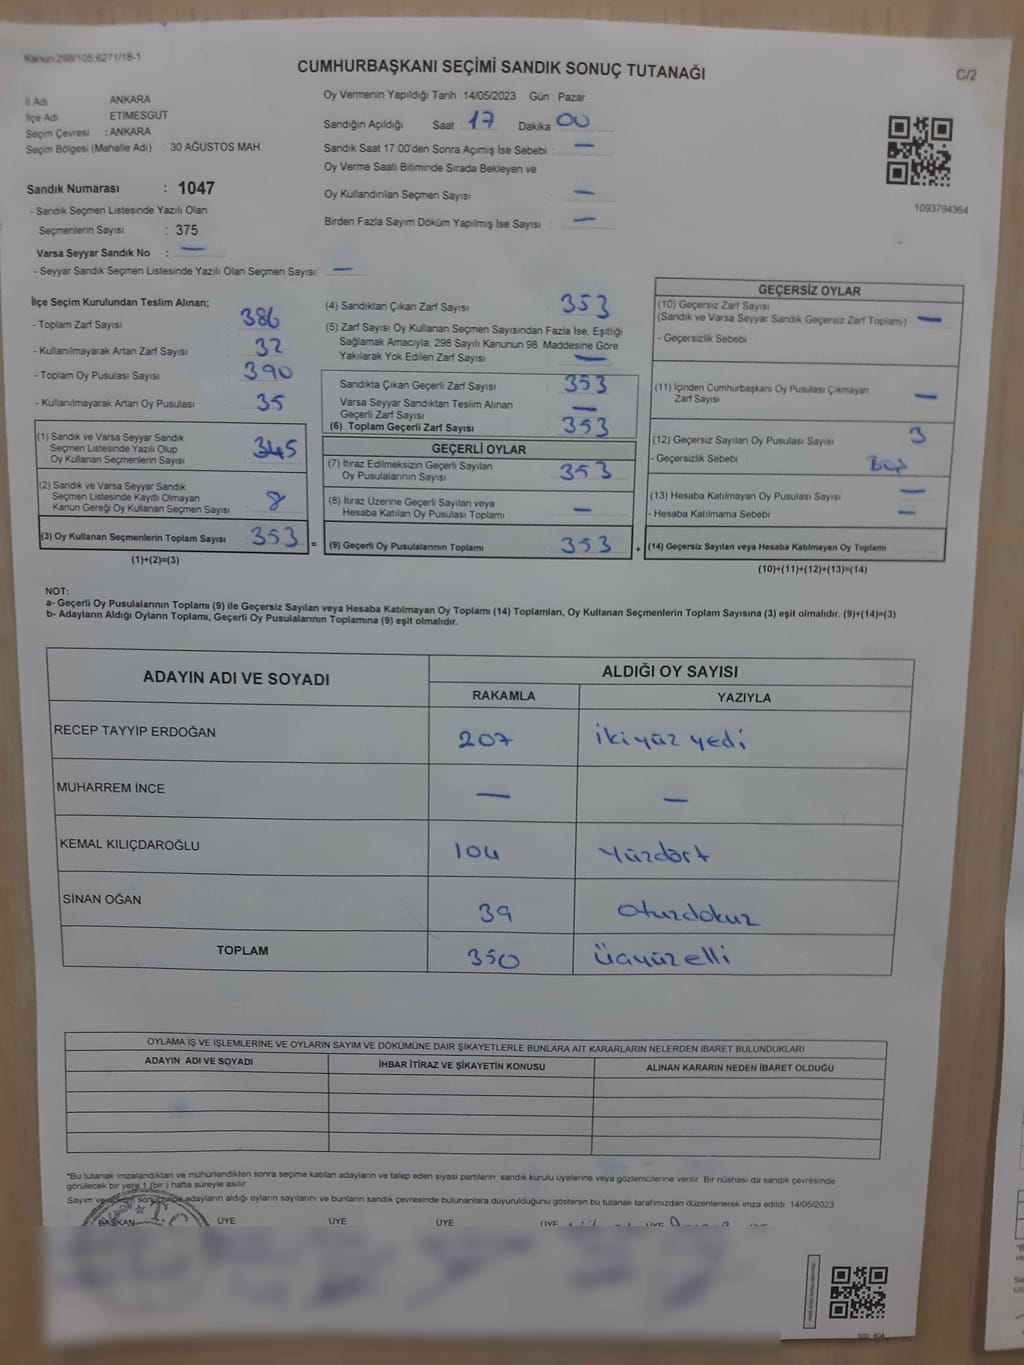 Kanun:298/105,6271/18-1
CUMHURBAŞKANI SEÇİMİ SANDIK SONUÇ TUTANAĞI
C/2
İl Adı ANKARA
İlçe Adı ETİMESGUT
Seçim Çevresi : ANKARA
Seçim Bölgesi (Mahalle Adı) : 30 AĞUSTOS MAH.
Sandık Numarası : 1047
- Sandık Seçmen Listesinde Yazılı Olan
Seçmenlerin Sayısı : 375
Varsa Seyyar Sandık No : —
- Seyyar Sandık Seçmen Listesinde Yazılı Olan Seçmen Sayısı: —
Oy Vermenin Yapıldığı Tarih : 14/05/2023 Gün : Pazar
Sandığın Açıldığı Saat : 17 Dakika : 00
Sandık Saat 17.00'den Sonra Açımış İse Sebebi : —
Oy Verme Saati Bitiminde Sırada Bekleyen ve
Oy Kullandırılan Seçmen Sayısı : —
Birden Fazla Sayım Döküm Yapılmış İse Sayısı : —
1093794364
İlçe Seçim Kurulundan Teslim Alınan;
- Toplam Zarf Sayısı : 386
- Kullanılmayarak Artan Zarf Sayısı : 32
- Toplam Oy Pusulası Sayısı : 390
- Kullanılmayarak Artan Oy Pusulası : 35
(1) Sandık ve Varsa Seyyar Sandık
Seçmen Listesinde Yazılı Olup
Oy Kullanan Seçmenlerin Sayısı : 345
(2) Sandık ve Varsa Seyyar Sandık
Seçmen Listesinde Kayıtlı Olmayan
Kanun Gereği Oy Kullanan Seçmen Sayısı : 8
(3) Oy Kullanan Seçmenlerin Toplam Sayısı : 353
(1)+(2)=(3)
(4) Sandıktan Çıkan Zarf Sayısı : 353
(5) Zarf Sayısı Oy Kullanan Seçmen Sayısından Fazla İse, Eşitliği
Sağlamak Amacıyla; 298 Sayılı Kanunun 98. Maddesine Göre
Yakılarak Yok Edilen Zarf Sayısı : —
Sandıkta Çıkan Geçerli Zarf Sayısı : 353
Varsa Seyyar Sandıktan Teslim Alınan
Geçerli Zarf Sayısı : —
(6) Toplam Geçerli Zarf Sayısı : 353
GEÇERLİ OYLAR
(7) İtiraz Edilmeksizin Geçerli Sayılan
Oy Pusulalarının Sayısı : 353
(8) İtiraz Üzerine Geçerli Sayılan veya
Hesaba Katılan Oy Pusulası Toplamı : —
= (9) Geçerli Oy Pusulalarının Toplamı : 353
GEÇERSİZ OYLAR
(10) Geçersiz Zarf Sayısı
(Sandık ve Varsa Seyyar Sandık Geçersiz Zarf Toplamı) : —
- Geçersizlik Sebebi :
(11) İçinden Cumhurbaşkanı Oy Pusulası Çıkmayan
Zarf Sayısı : —
(12) Geçersiz Sayılan Oy Pusulası Sayısı : 3
- Geçersizlik Sebebi :
(13) Hesaba Katılmayan Oy Pusulası Sayısı : —
- Hesaba Katılmama Sebebi : —
+ (14) Geçersiz Sayılan veya Hesaba Katılmayan Oy Toplamı :
(10)+(11)+(12)+(13)=(14)
NOT:
a- Geçerli Oy Pusulalarının Toplamı (9) ile Geçersiz Sayılan veya Hesaba Katılmayan Oy Toplamı (14) Toplamları, Oy Kullanan Seçmenlerin Toplam Sayısına (3) eşit olmalıdır. (9)+(14)=(3)
b- Adayların Aldığı Oyların Toplamı, Geçerli Oy Pusulalarının Toplamına (9) eşit olmalıdır.
ADAYIN ADI VE SOYADI
ALDIĞI OY SAYISI
RAKAMLA YAZIYLA
RECEP TAYYİP ERDOĞAN 207 ikiyüz yedi
MUHARREM İNCE — —
KEMAL KILIÇDAROĞLU 104 Yüzdört
SİNAN OĞAN 39 Otuzdokuz
TOPLAM 350 Üçyüz elli
OYLAMA İŞ VE İŞLEMLERİNE VE OYLARIN SAYIM VE DÖKÜMÜNE DAİR ŞİKAYETLERLE BUNLARA AİT KARARLARIN NELERDEN İBARET BULUNDUKLARI
ADAYIN ADI VE SOYADI İHBAR İTİRAZ VE ŞİKAYETİN KONUSU ALINAN KARARIN NEDEN İBARET OLDUĞU
*Bu tutanak imzalandıktan ve mühürlendikten sonra seçime katılan adayların ve talep eden siyasi partilerin sandık kurulu üyelerine veya gözlemcilerine verilir. Bir nüshası da sandık çevresinde
görülecek bir yere 1 (bir) hafta süreyle asılır.
Sayım ve döküm sonucunda adayların aldığı oyların sayılarını ve bunların sandık çevresinde bulunanlara duyurulduğunu gösteren bu tutanak tarafımızdan düzenlenerek imza edildi. 14/05/2023
BAŞKAN ÜYE ÜYE ÜYE ÜYE ÜYE
T.C.